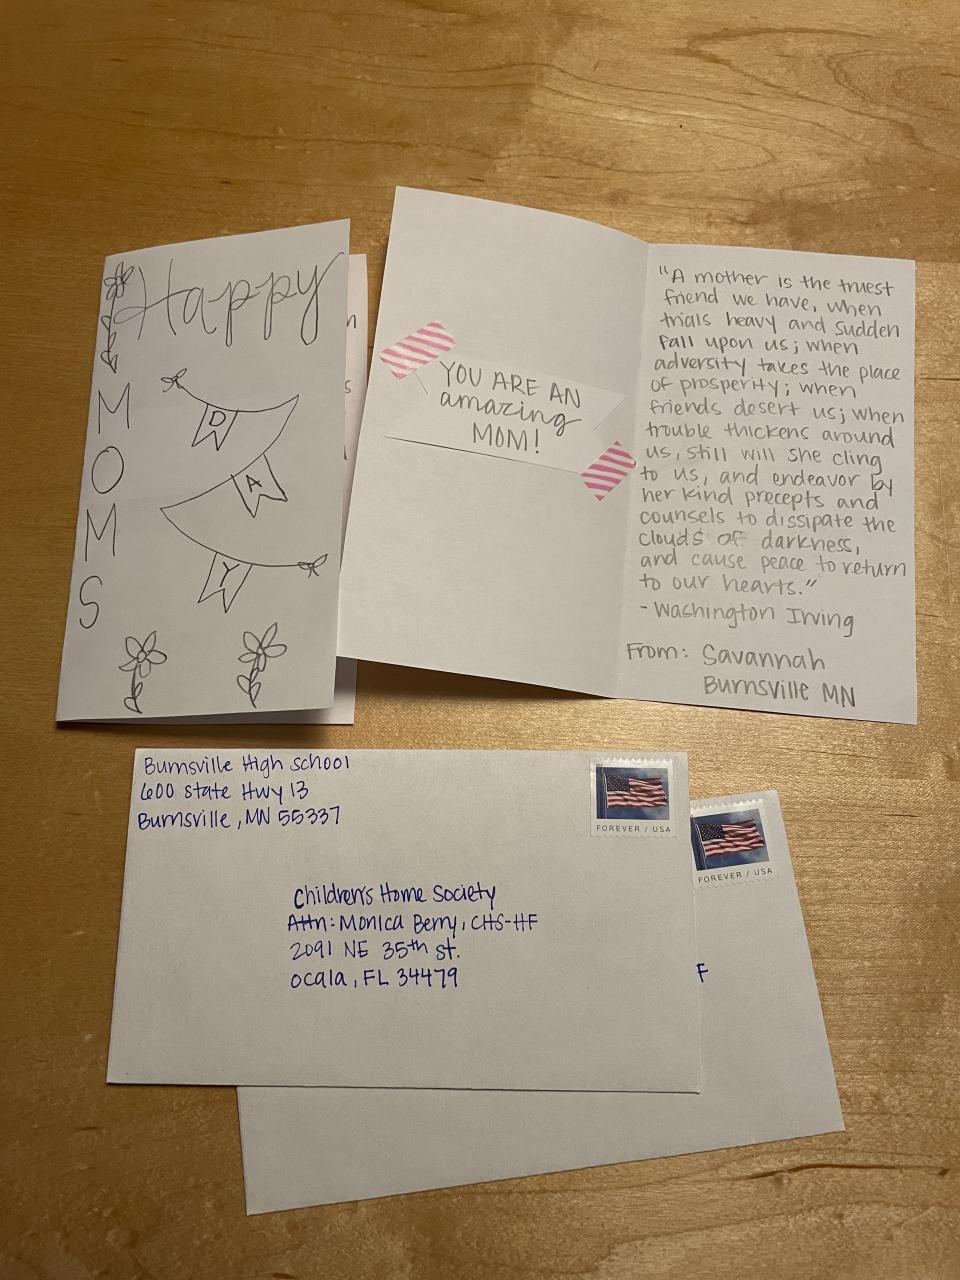 Happy
MOMS
DAY
YOU ARE AN
amazing
MOM!
"A mother is the truest
friend we have, when
trials heavy and sudden
fall upon us; when
adversity takes the place
of prosperity; when
friends desert us; when
trouble thickens around
us, still will she cling
to us, and endeavor by
her kind precepts and
counsels to dissipate the
clouds of darkness,
and cause peace to return
to our hearts."
- Washington Irving
From: Savannah
Burnsville MN
Burnsville High School
600 State Hwy 13
Burnsville, MN 55337
FOREVER / USA
FOREVER / USA
Children's Home Society
Attn: Monica Berry, CHS-HF
2091 NE 35th St.
Ocala, FL 34479
F